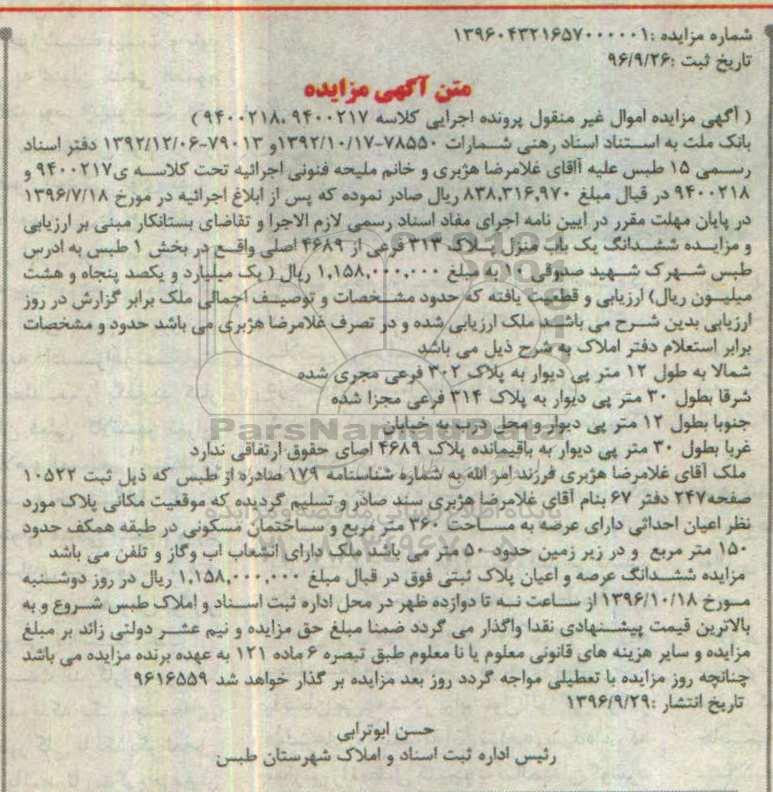 شماره مزایده :۱۳۹۶۰۴۳۲۱۶۵۷۰۰۰۰۰۱
تاریخ ثبت :۹۶/۹/۲۶
متن آگهی مزایده
( آگهی مزایده اموال غیر منقول پرونده اجرایی کلاسه ۹۴۰۰۲۱۷ ،۹۴۰۰۲۱۸ )
بانک ملت به استناد اسناد رهنی شمارات ۷۸۵۵۰-۱۳۹۲/۱۰/۱۷و ۷۹۰۱۳-۱۳۹۲/۱۲/۰۶ دفتر اسناد
رسمی ۱۵ طبس علیه آاقای غلامرضا هژبری و خانم ملیحه فنونی اجرائیه تحت کلاسه ی۹۴۰۰۲۱۷ و
۹۴۰۰۲۱۸ در قبال مبلغ ۸۳۸,۳۱۶,۹۷۰ ریال صادر نموده که پس از ابلاغ اجرائیه در مورخ ۱۳۹۶/۷/۱۸
در پایان مهلت مقرر در ایین نامه اجرای مفاد اسناد رسمی لازم الاجرا و تقاضای بستانکار مبنی بر ارزیابی
و مزایده ششدانگ یک باب منزل پلاک ۳۱۳ فرعی از ۴۶۸۹ اصلی واقع در بخش ۱ طبس به ادرس
طبس شهرک شهید صدوقی ۱۰ به مبلغ ۱,۱۵۸,۰۰۰,۰۰۰ ریال ( یک میلیارد و یکصد پنجاه و هشت
میلیون ریال) ارزیابی و قطعیت یافته که حدود مشخصات و توصیف اجمالی ملک برابر گزارش در روز
ارزیابی بدین شرح می باشد ملک ارزیابی شده و در تصرف غلامرضا هژبری می باشد حدود و مشخصات
برابر استعلام دفتر املاک به شرح ذیل می باشد
شمالا به طول ۱۲ متر پی دیوار به پلاک ۳۰۲ فرعی مجری شده
شرقا بطول ۳۰ متر پی دیوار به پلاک ۳۱۴ فرعی مجزا شده
جنوبا بطول ۱۲ متر پی دیوار و محل درب به خیابان
غربا بطول ۳۰ متر پی دیوار به باقیمانده پلاک ۴۶۸۹ اصای حقوق ارتفاقی ندارد
ملک آقای غلامرضا هژبری فرزند امر الله به شماره شناسنامه ۱۷۹ صادره از طبس که ذیل ثبت ۱۰۵۲۲
صفحه۲۴۷ دفتر ۶۷ بنام آقای غلامرضا هژبری سند صادر و تسلیم گردیده که موقعیت مکانی پلاک مورد
نظر اعیان احداثی دارای عرصه به مساحت ۳۶۰ متر مربع و ساختمان مسکونی در طبقه همکف حدود
۱۵۰ متر مربع و در زیر زمین حدود ۵۰ متر می باشد ملک دارای انشعاب اب وگاز و تلفن می باشد
مزایده ششدانگ عرصه و اعیان پلاک ثبتی فوق در قبال مبلغ ۱,۱۵۸,۰۰۰,۰۰۰ ریال در روز دوشنبه
مورخ ۱۳۹۶/۱۰/۱۸ از ساعت نه تا دوازده ظهر در محل اداره ثبت اسناد و املاک طبس شروع و به
بالاترین قیمت پیشنهادی نقدا واگذار می گردد ضمنا مبلغ حق مزایده و نیم عشر دولتی زائد بر مبلغ
مزایده و سایر هزینه های قانونی معلوم یا نا معلوم طبق تبصره ۶ ماده ۱۲۱ به عهده برنده مزایده می باشد
چنانچه روز مزایده با تعطیلی مواجه گردد روز بعد مزایده بر گذار خواهد شد ۹۶۱۶۵۵۹
تاریخ انتشار :۱۳۹۶/۹/۲۹
حسن ابوترابی
رئیس اداره ثبت اسناد و املاک شهرستان طبس
ParsNamadData